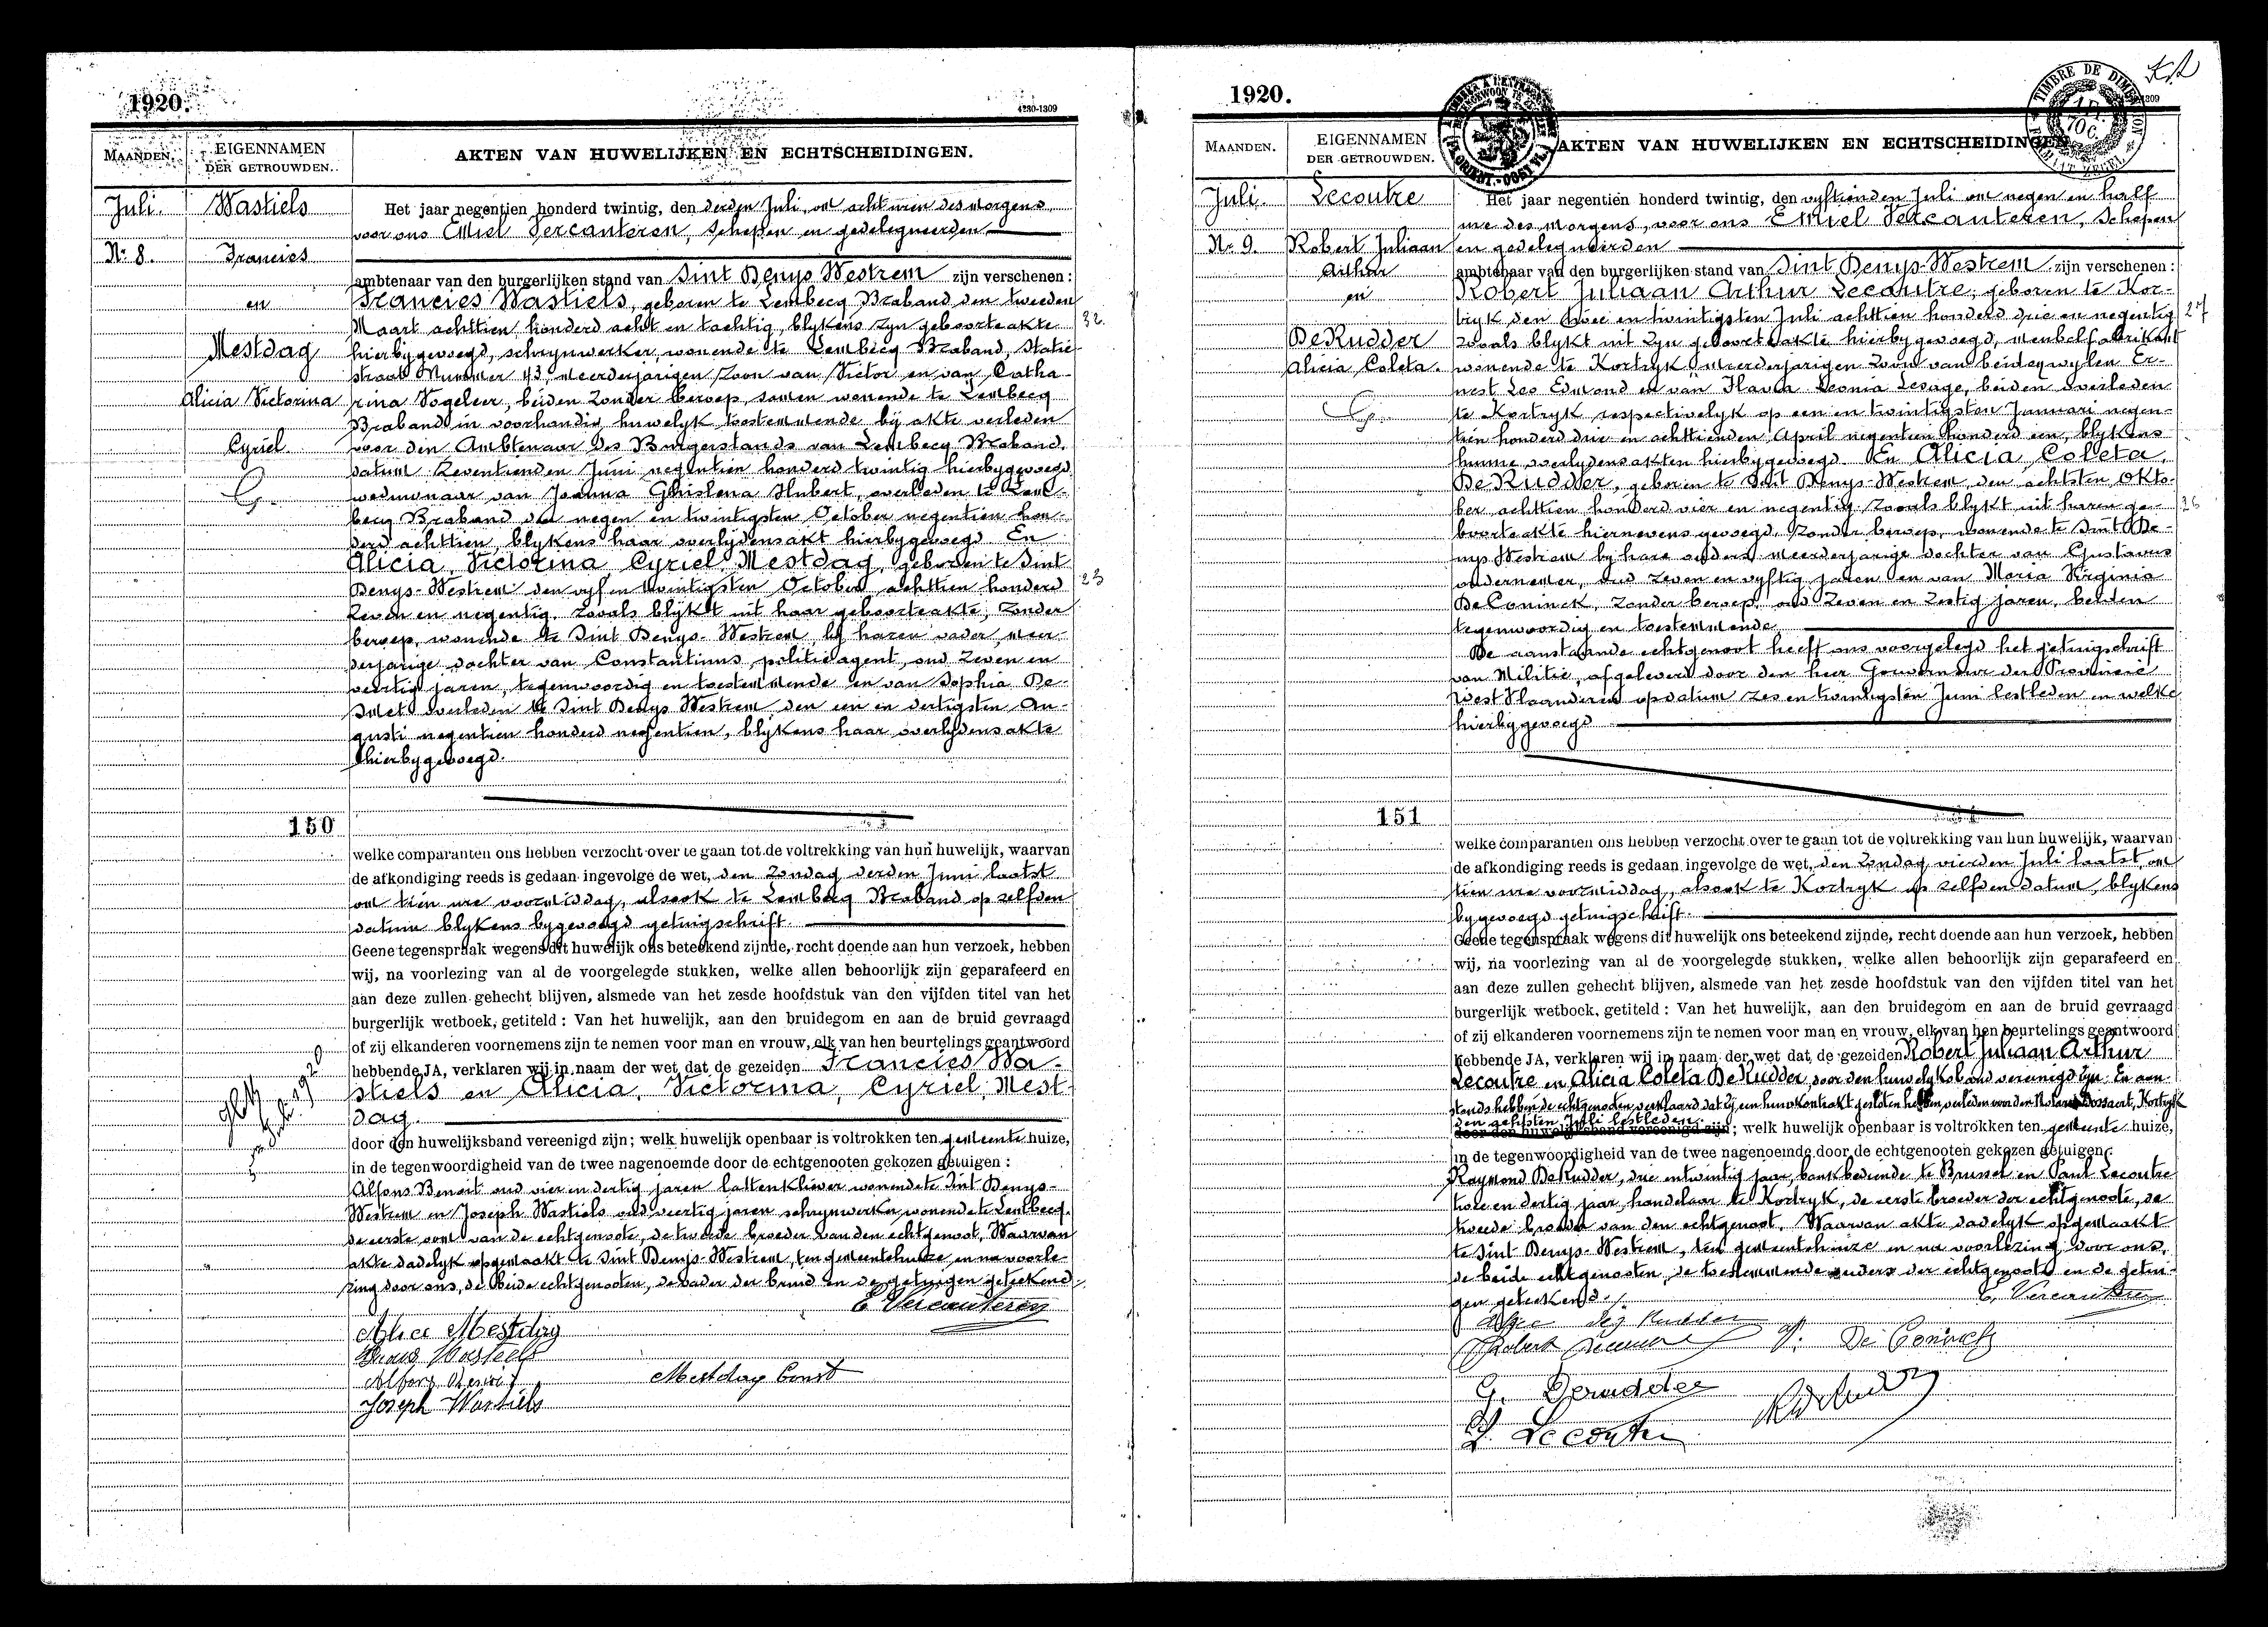 1920.
4230-1309
MAANDEN.
EIGENNAMEN
DER GETROUWDEN.
AKTEN VAN HUWELIJKEN EN ECHTSCHEIDINGEN.
Juli.
Nr 8.
Wastiels
Francies
en
Mestdag
Alicia Victorina
Cyriel
G.
Het jaar negentien honderd twintig, den derden Juli, om acht uren des morgens
voor ons Emiel Vercauteren, schepen en gedelegueerden
ambtenaar van den burgerlijken stand van Sint Denys Westrem zijn verschenen :
Francies Wastiels, geboren te Lembecq Braband den tweeden
Maart achttien honderd acht en tachtig, blykens zyn geboorteakte
32
hierbygevoegd, schrynwerker, wonende te Lembecq Braband, Statie
straat Nummer 43, meerderjarigen zoon van Victor en van Catha-
rina Vogeleer, beiden zonder beroep, samen wonende te Lembecq
Braband in voorhandig huwelyk toestemmende bij akte verleden
voor den Ambtenaar des Burgerstands van Lembecq Braband,
datum zeventienden Juni negentien honderd twintig hierbygevoegd
weduwnaar van Joanna Ghislena Hubert, overleden te Lem-
becq Braband den negen en twintigsten October negentien hon-
derd achttien, blykens haar overlydensakt hierbygevoegd. En
Alicia, Victorina Cyriel Mestdag, geboren te Sint
Denys-Westrem den vyf en twintigsten October achttien honderd
23
zeven en negentig, zooals blijkt uit haar geboorteakte, zonder
beroep, wonende te Sint Denys-Westrem bij haren vader, meer-
derjarige dochter van Constantinus, politieagent, oud zeven en
veertig jaren, tegenwoordig en toestemmende en van Sophia De-
smet overleden te Sint Denys Westrem den een en dertigsten Au-
gusti negentien honderd negentien, blykens haar overlydensakte
hierbygevoegd.
150
welke comparanten ons hebben verzocht over te gaan tot de voltrekking van hun huwelijk, waarvan
de afkondiging reeds is gedaan ingevolge de wet, den Zondag derden Juni laatst
om tien ure voormiddag, alsook te Lembecq Braband op zelfden
datum blykens bygevoegd getuigschrift.
Geene tegenspraak wegens dit huwelijk ons beteekend zijnde, recht doende aan hun verzoek, hebben
wij, na voorlezing van al de voorgelegde stukken, welke allen behoorlijk zijn geparafeerd en
aan deze zullen gehecht blijven, alsmede van het zesde hoofdstuk van den vijfden titel van het
burgerlijk wetboek, getiteld : Van het huwelijk, aan den bruidegom en aan de bruid gevraagd
of zij elkanderen voornemens zijn te nemen voor man en vrouw, elk van hen beurtelings geantwoord
hebbende JA, verklaren wij in naam der wet dat de gezeiden Francies Wa-
stiels en Alicia, Victorina, Cyriel, Mest-
dag
door den huwelijksband vereenigd zijn; welk huwelijk openbaar is voltrokken ten gemeente huize,
in de tegenwoordigheid van de twee nagenoemde door de echtgenooten gekozen getuigen :
Alfons Benoit oud vier en dertig jaren lattenkliever wonende te Sint Denys-
Westrem en Joseph Wastiels oud veertig jaren schrynwerker wonende te Lembecq.
de eerste oom van de echtgenoote, de tweede broeder van den echtgenoot. Waarvan
akte dadelyk opgemaakt te Sint Denys-Westrem, ten gemeentehuize, en na voorle-
zing door ons, de beide echtgenooten, de vader der bruid en de getuigen geteekend.
E Vercauteren
Alice Mestdag
Wastiels
Alfons Benoit
Mestdag Const
Joseph Wastiels
1920.
TIMBRE DE DIMENSION
MAANDEN.
EIGENNAMEN
DER GETROUWDEN.
AKTEN VAN HUWELIJKEN EN ECHTSCHEIDINGEN.
Juli.
Nr 9.
Lecoutre
Robert Juliaan
Arthur
en
DeRudder
Alicia Coleta.
G.
Het jaar negentien honderd twintig, den vyftienden Juli om negen en half
ure des morgens, voor ons Emiel Vercauteren, schepen
en gedelegueerden
ambtenaar van den burgerlijken stand van Sint Denys-Westrem zijn verschenen :
Robert Juliaan Arthur Lecoutre, geboren te Kor-
tryk den twee en twintigsten Juli achttien honderd drie en negentig
27
zooals blykt uit zyn geboorteakte hierbygevoegd, meubelfabrikant
wonende te Kortryk meerderjarigen zoon van beiden wylen Er-
nest Leo Edmond en van Flavia Leonia Lesage, beiden overleden
te Kortryk respectivelyk op een en twintigsten Januari negen-
tien honderd drie en achttienden April negentien honderd een, blykens
hunne overlydensakten hierbygevoegd. En Alicia, Coleta,
DeRudder, geboren te Sint Denys-Westrem, den achtsten Okto-
ber achttien honderd vier en negentig zooals blykt uit haren ge-
boorteakte hiernevens gevoegd, zonder beroep, wonende te Sint De-
nys Westrem by hare ouders meerderjarige dochter van Gustavus
ondernemer, oud zeven en vyftig jaren en van Maria Virginia
DeConinck, zonder beroep, oud zeven en zestig jaren, beiden
tegenwoordig en toestemmende
De aanstaande echtgenoot heeft ons voorgelegd het getuigschrift
van Militie, afgeleverd door den heer Gouverneur der Provincie
West Vlaanderen op datum zes en twintigsten Juni lestleden en welke
hierbygevoegd
151
welke comparanten ons hebben verzocht over te gaan tot de voltrekking van hun huwelijk, waarvan
de afkondiging reeds is gedaan ingevolge de wet, den Zondag vierden Juli laatst, om
tien ure voormiddag, alsook te Kortryk op zelfden datum, blykens
bygevoegd getuigschrift.
Geene tegenspraak wegens dit huwelijk ons beteekend zijnde, recht doende aan hun verzoek, hebben
wij, na voorlezing van al de voorgelegde stukken, welke allen behoorlijk zijn geparafeerd en
aan deze zullen gehecht blijven, alsmede van het zesde hoofdstuk van den vijfden titel van het
burgerlijk wetboek, getiteld : Van het huwelijk, aan den bruidegom en aan de bruid gevraagd
of zij elkanderen voornemens zijn te nemen voor man en vrouw, elk van hen beurtelings geantwoord
hebbende JA, verklaren wij in naam der wet dat de gezeiden Robert Juliaan Arthur
Lecoutre en Alicia Coleta DeRudder door den huwelyksband vereenigd zyn. En aan-
stonds hebben de echtgenoten verklaard dat zij een huwkontrakt gesloten hebben verleden voor den Notaris Bossaert, Kortryk
den achtsten Juli lestleden
door den huwelijksband vereenigd zijn; welk huwelijk openbaar is voltrokken ten gemeente huize,
in de tegenwoordigheid van de twee nagenoemde door de echtgenooten gekozen getuigen :
Raymond DeRudder, drie en twintig jaar, bankbediende te Brussel en Paul Lecoutre
twee en dertig jaar, handelaar te Kortryk, de eerste broeder der echtgenoote, de
tweede broeder van den echtgenoot. Waarvan akte dadelyk opgemaakt
te Sint-Denys-Westrem, ten gemeentehuize en na voorlezing door ons,
de beide echtgenooten, de toestemmende ouders der echtgenoote en de getui-
gen geteekend.
E. Vercauteren
De Coninck
G. Derudder
P. Lecoutre